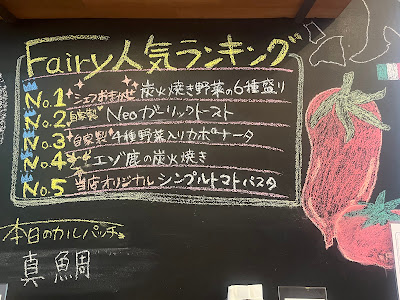 Fairy人気ランキング
No.1 シェフおまかせ 炭火焼き野菜の6種盛り
No.2 自家製 Neoガーリックトースト
No.3 自家製 4種野菜入りカポナータ
No.4 エゾ鹿の炭火焼き
No.5 当店オリジナル シンプルトマトパスタ
本日のカルパッチョ
真鯛